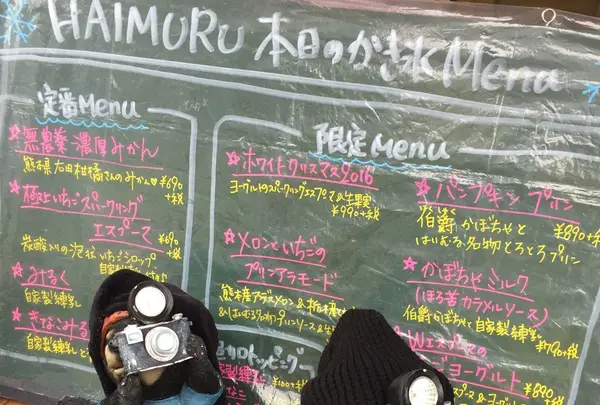 HAIMURU 本日のかき氷 Menu
定番Menu
☆無農薬 濃厚みかん
熊本県 右田柑橘さんのみかん ¥690+税
☆極上いちごスパークリング
エスプーマ ¥690+税
炭酸入りの泡 いちごシロップ
自家製練乳
☆みるく
自家製練乳
☆きなこみる
自家製練乳
限定Menu
☆ホワイトクリスマス2016
ヨーグルトのスパークリングエスプーマ&生果実
¥990+税
☆メロンといちごの
プリンアラモード
熊本産アンデスメロン&
&はいむる名物プリンソース&生
トッピング
☆パンプキンプリン
¥890+税
伯爵かぼちゃと
はいむる名物とろとろプリン
☆かぼちゃミルク
(ほろ苦カラメルソース)
伯爵かぼちゃと自家製練乳 ¥790+税
☆Wエスプーマの
ヨーグルト
¥890